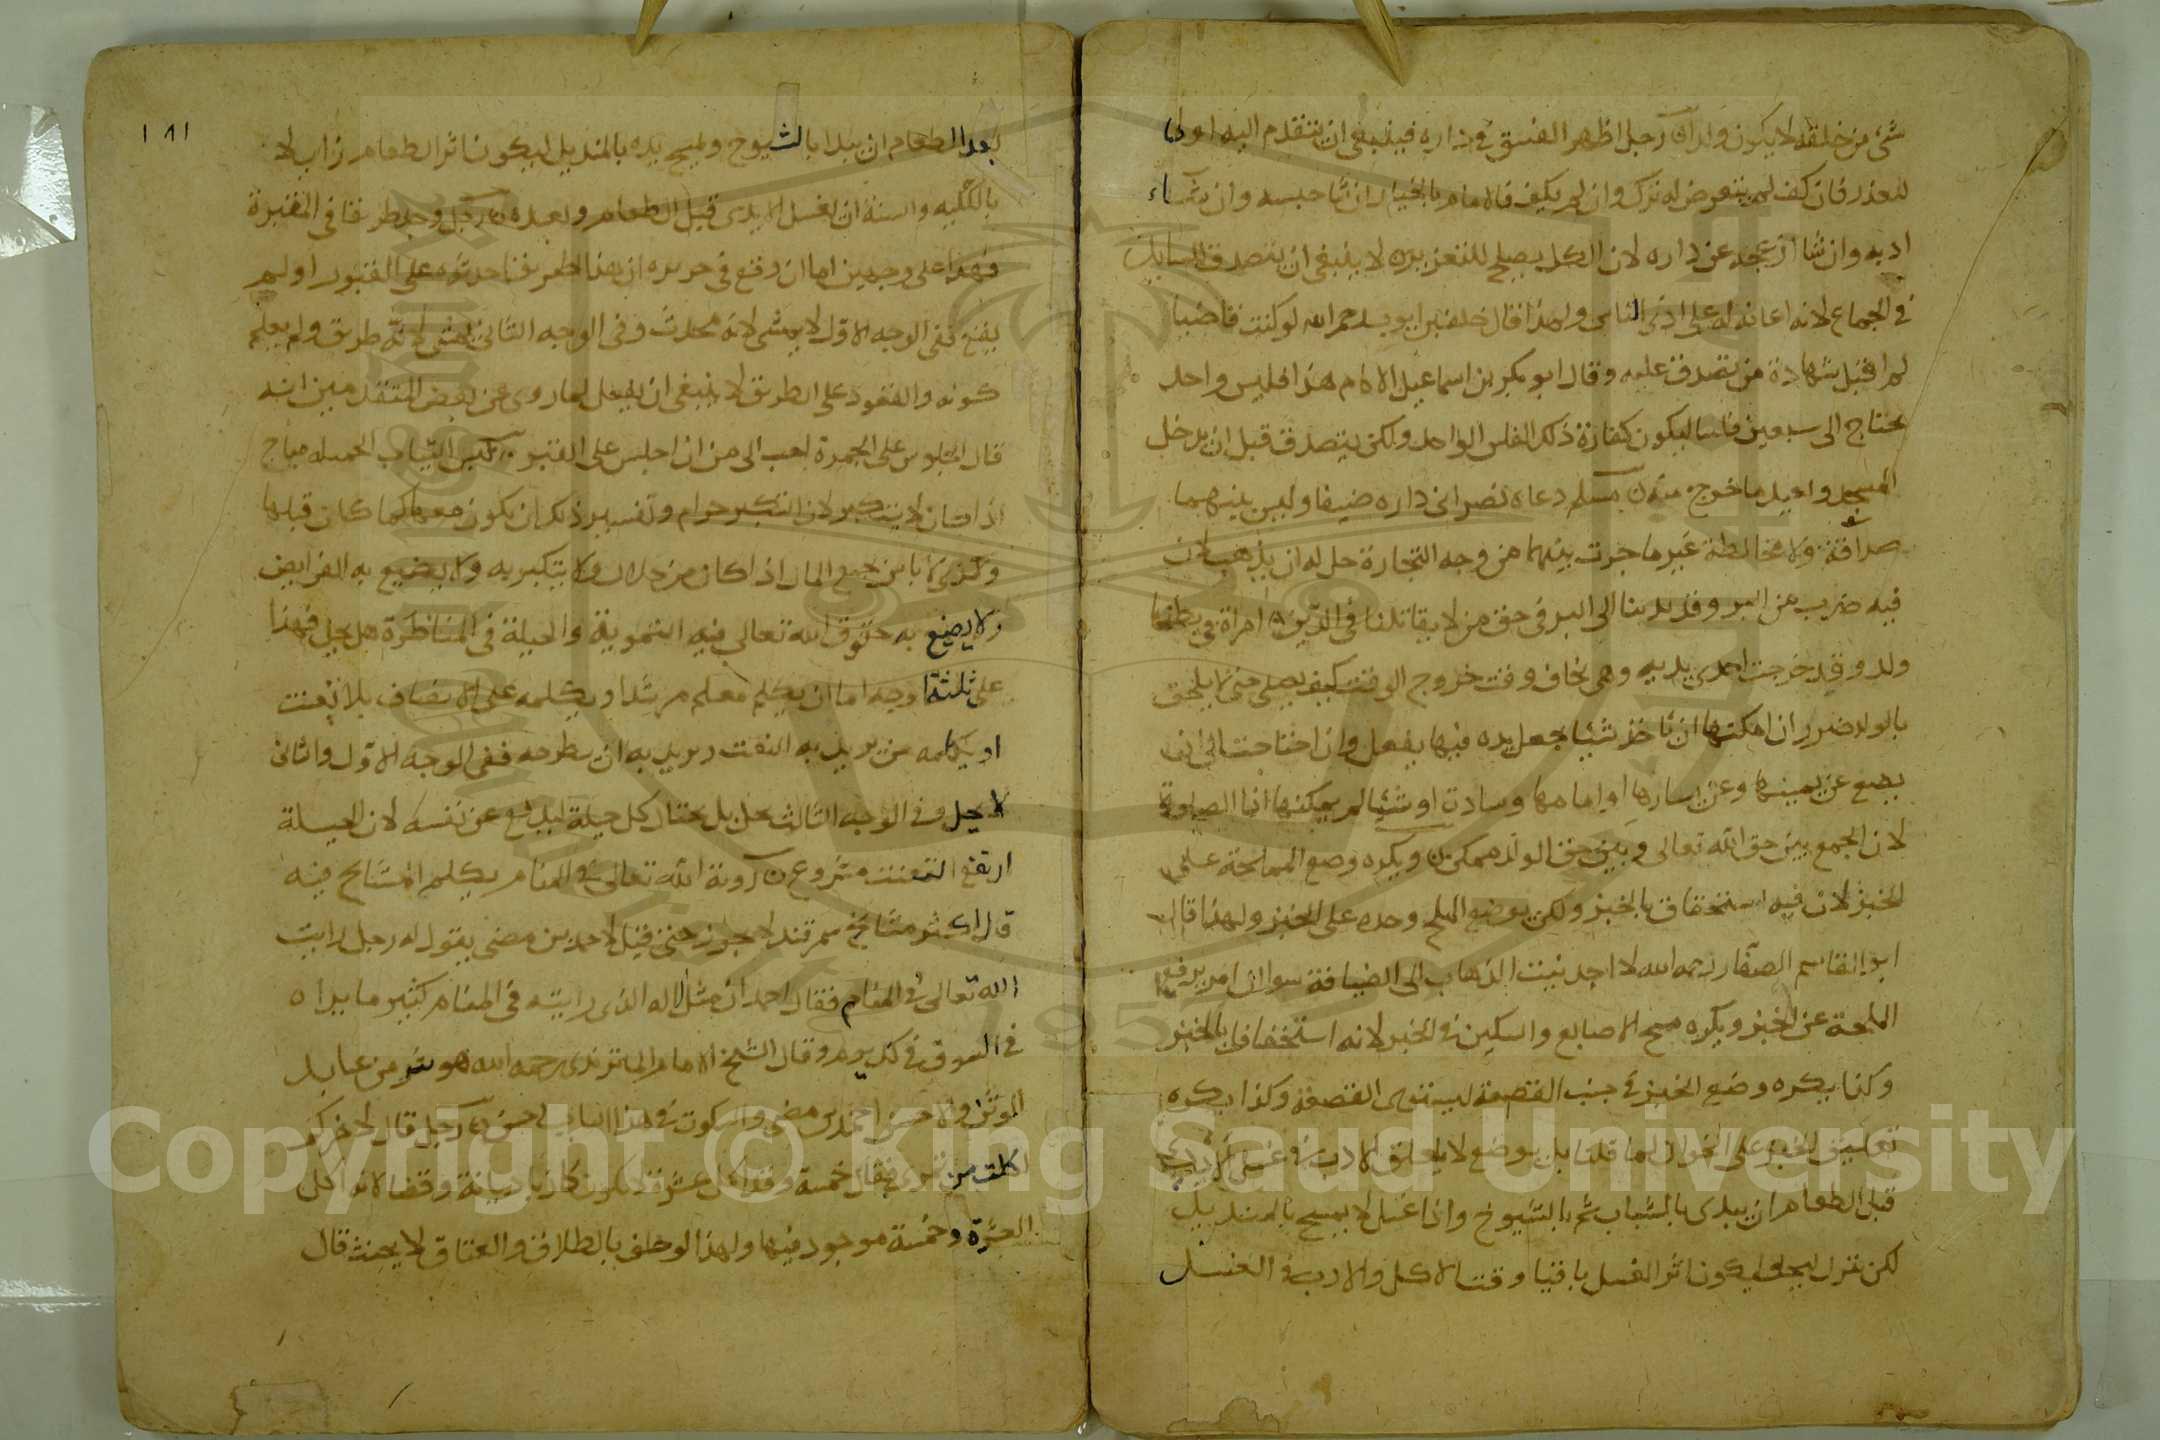 شئ من خلقه لا يكون وارك رجل اظهر الفسق في داره فينبغي ان يتقدم اليه اولا
لتعذر فان كف لم يتعرض له ترك وان لم يكف فالامام بالخيار ان شا حبسه وان شاء
ادبه وان شا ازعجه عن داره لان الكل يصلح للتعزير لا ينبغي ان يتصدق السايل
في الجماع لانه اعانه له على اذى الناس ولهذا قال خلف بن ايوب رحمه الله لو كنت قاضيا
لم اقبل شهادة من تصدق عليه وقال ابو بكر بن اسماعيل الامام هذا فليس واحد
يحتاج الى سبعين فلسا ليكون كفارة ذلك الفلس الواحد ولكن يتصدق قبل ان يدخل
المسجد وبعد ما خرج منه مسلم دعاه نصراني داره ضيفا وليس بينهما
صداقة ولا مخالطة غير ما جرت بينهما من وجه التجارة حل له ان يذهب لان
فيه ضرب من البر وقد ندبنا الى البر في حق من لا يقاتلنا في الدين امراة في بطنها
ولد وقد خرجت احدى يديه وهي تخاف وقت خروج الوقت كيف تصلي حتى لا يلحق
بالولد ضرر ان امكنها ان تاخذ شيئا جعل يده فيها يفعل وان احتاجت الى ان
يضع عن يمينها وعن يسارها او امامها وسادة او شيئا لم يمكنها اداء الصلوة
لان الجمع بين حق الله تعالى وبين حق الولد ممكن ويكره وضع المملحة على
الخبز لان فيه استخفاق بالخبز ولكن يوضع الملح وحده على الخبز ولهذا قال
ابو القاسم الصفار رحمه الله لا اجد نيت الذهاب الى الضيافة سوا ان امر برفع
الملحة عن الخبز ويكره مسح الاصابع والسكين في الخبز لانه استخفاف بالخبز
وكذا يكره وضع الخبز في جنب القصعة ليستوى القصعة وكذا يكره
تعليق الخبز على الخوان لما قلنا بل يوضع لا يعلق الادب في غسل الايدي
قبل الطعام ان يبدى بالشباب ثم بالشيوخ واذا غسل لا يمسح بالمنديل
لكن تترك ليجف ليكون اثر الغسل باقيا وقت الاكل والادب في الغسل
١٨١
بعد الطعام ان يبدا بالشيوخ ويمسح يده بالمنديل ليكون اثر الطعام زايلا
بالكليه والسنة ان يغسل الايدى قبل الطعام وبعده رجل وجد طريقا في المقبرة
فهذا على وجهين اما ان وقع في ان هذا الطريق احدثوه على القبور او لم
يقع ففي الوجه الاول لا يمشى لانه محدث وفي الوجه الثاني يمشي لانه طريق ولم يعلم
كونه والقعود على الطريق لا ينبغي ان يفعل لما روى عن بعض المتقدمين انه
قال الجلوس على الجمرة احب الى من ان اجلس على القبر لبس الثياب الجميله مباح
اذا كان لا يتكبر لان التكبر حرام وتفسير ذلك ان يكون معها كما كان قبلها
وكذى لا باس جمع المال اذا كان من حلال ولا يتكبر به ولا يضيع به الفرايض
ولا يضيع به حقوق الله تعالى فيه التمويه والحيلة في المناظرة هل يحل فهذا
على ثلثة اوجه اما ان يكلم معلم مرشدا ويكلمه على الانصاف بلا تعنت
او يكلمه من يريد به التعنت ويريد به ان يطرحه ففي الوجه الاول والثاني
لا يحل وفي الوجه الثالث يحل بل يحتار كل حيلة ليدفع عن نفسه لان الحيلة
ارتفع التعنت مشروع روية الله تعالى في المنام يكلم المشايخ فيه
قال اكثر مشايخ سمرقند لا يجوز حتى قيل لاحمد بن مضى يقول له رجل رايت
الله تعالى في المنام فقال احمد ان مثل الاله الذي رايته في المنام كثير ما يراه
في السوق في كل يوم وقال الشيخ الامام الماتريدي رحمه الله هو شر من عابد
الوثن ولا حسن احمد بن مضى والسكوت في هذا الباب حسن رجل قال لاخر كم
اكلت من فقال خمسة وقد اكل عشرة لا يكون كاذبا ديانة وقضا لانه اكل
العشرة وخمسة موجود فيها ولهذا لو حلف بالطلاق والعتاق لا يحنث قال
Copyright © King Saud University